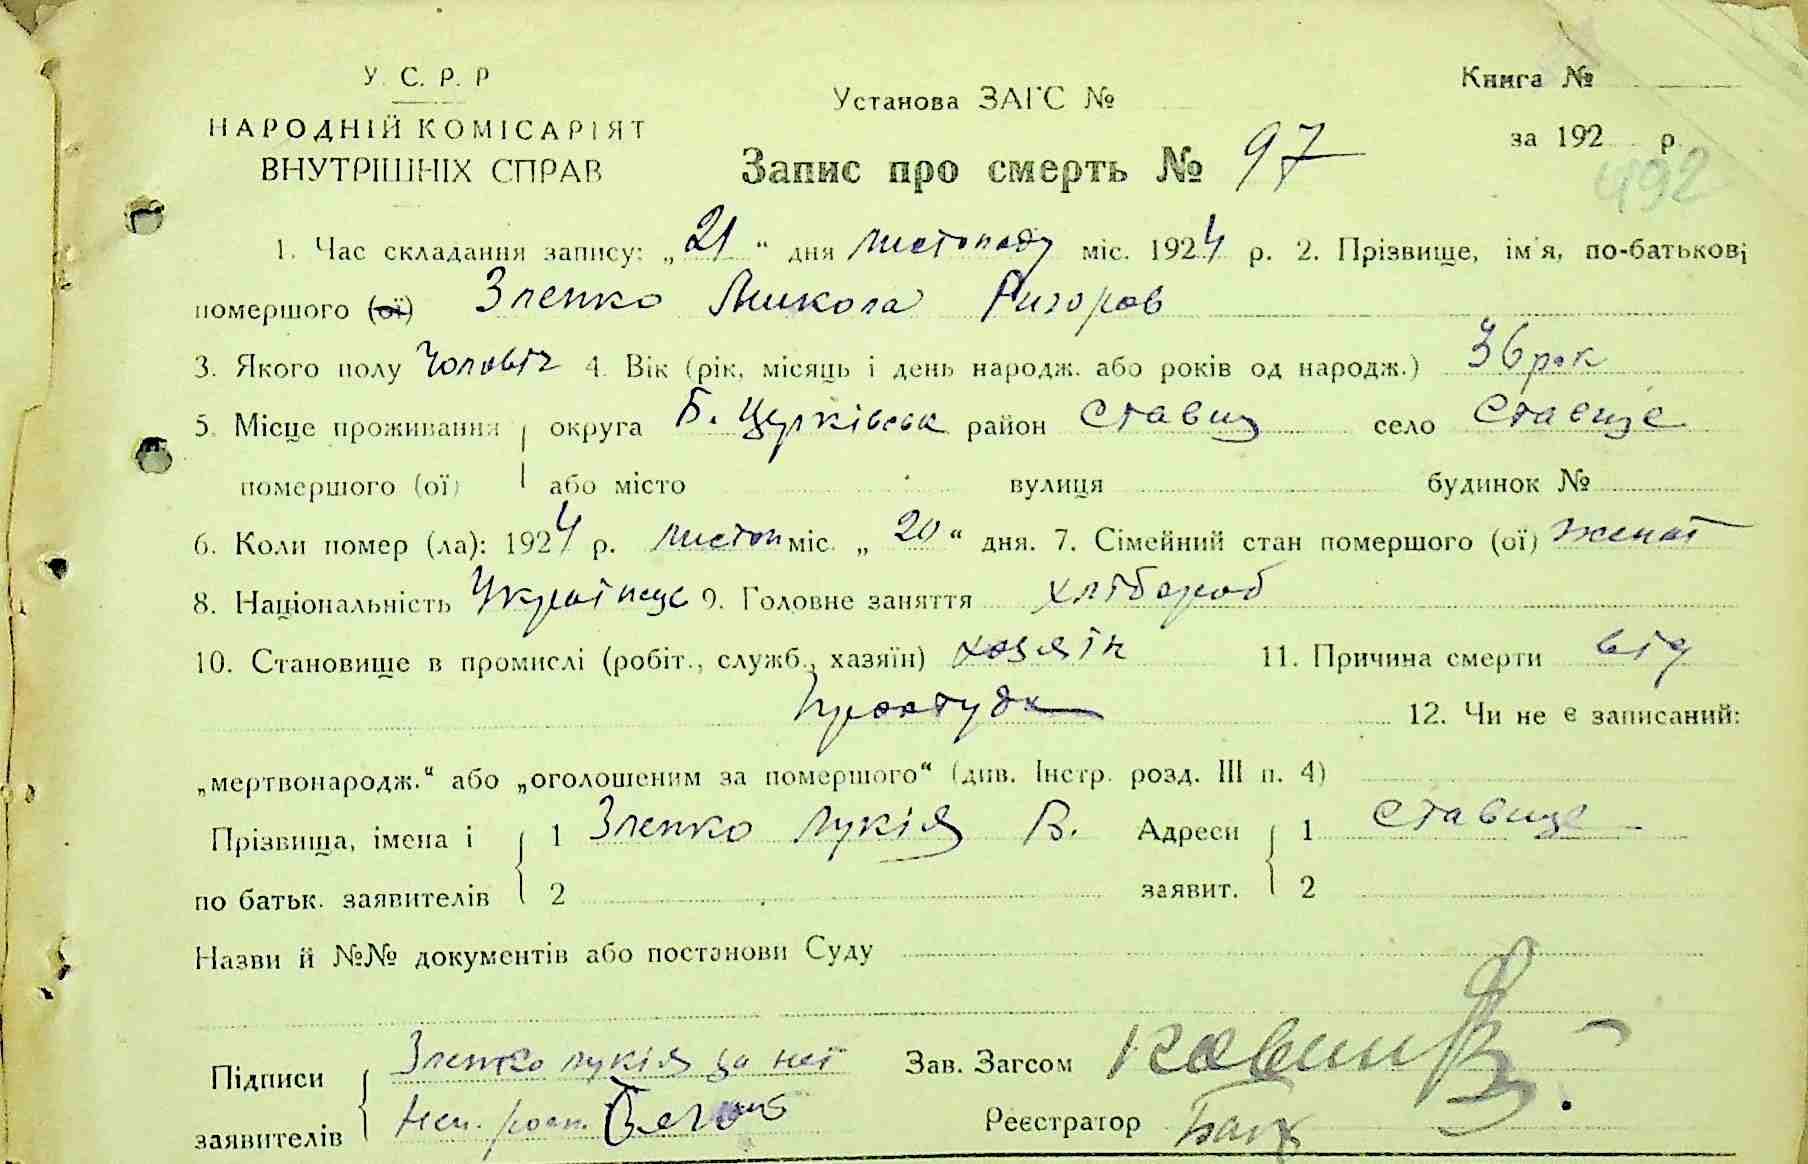 У. С. Р. Р
НАРОДНІЙ КОМІСАРІЯТ
ВНУТРІШНІХ СПРАВ
Установа ЗАГС №
Запис про смерть № 97
Книга №
за 192 р.
492
1. Час складання запису: „21“ дня листопаду міс. 1924 р. 2. Прізвище, ім'я, по-батькові
помершого (ої) Зленко Микола Ригоров
3. Якого полу чоловіч 4. Вік (рік, місяць і день народж. або років од народж.) 36 рок
5. Місце проживання округа Б. Церківськ район Ставищ село Ставище
помершого (ої) або місто вулиця будинок №
6. Коли помер (ла): 1924 р. листоп міс. „20“ дня. 7. Сімейний стан помершого (ої) женат
8. Національність Українець 9. Головне заняття хлібороб
10. Становище в промислі (робіт., служб., хазяїн) хозяїн 11. Причина смерти від
простуди 12. Чи не є записаний:
„мертвонародж.“ або „оголошеним за помершого“ (див. Інстр. розд. III п. 4)
Прізвища, імена і 1 Зленко Лукія В. Адреси 1 Ставище
по батьк. заявителів 2 заявит. 2
Назви й №№ документів або постанови Суду
Підписи Зленко Лукія за неї Зав. Загсом
заявителів Реєстратор